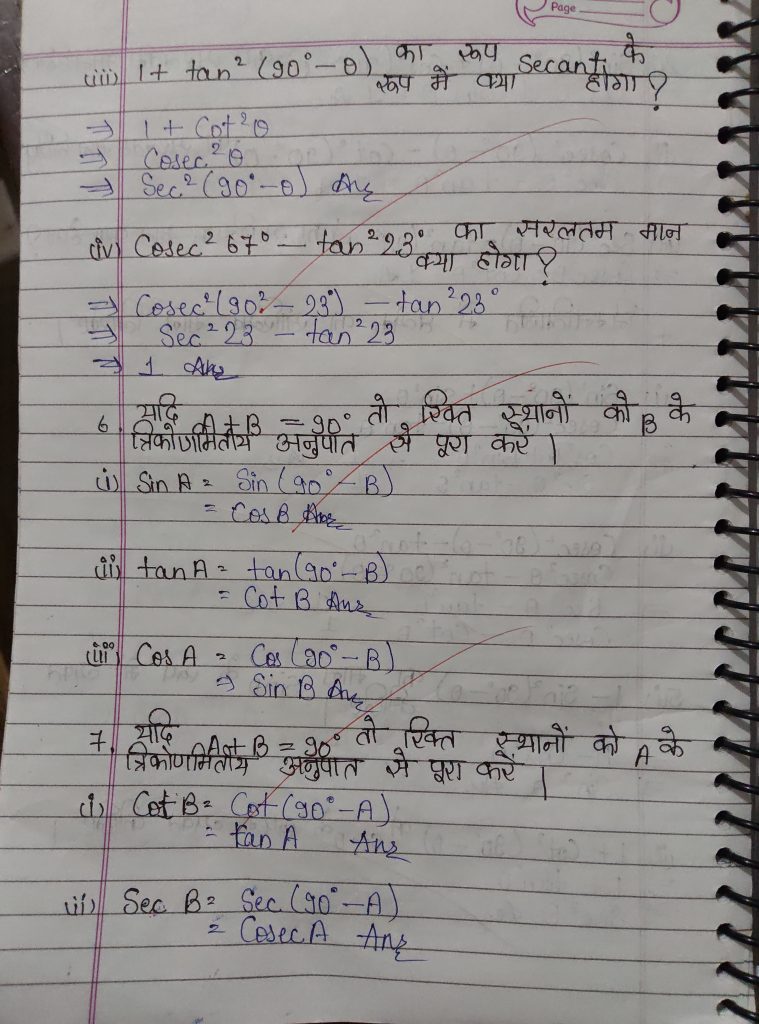 Page
(iii) 1 + tan² (90° − θ) का रूप secant के
रूप में क्या होगा?
⇒ 1 + Cot²θ
⇒ Cosec²θ
⇒ Sec² (90° − θ) Ans
(iv) Cosec² 67° − tan² 23° का सरलतम मान
क्या होगा?
⇒ Cosec² (90° − 23°) − tan² 23°
⇒ Sec² 23 − tan² 23
⇒ 1 Ans
6. यदि A + B = 90° तो रिक्त स्थानों को B के
त्रिकोणमितीय अनुपात से पूरा करें।
(i) Sin A = Sin (90° − B)
= Cos B Ans
(ii) tan A = tan (90° − B)
= Cot B Ans
(iii) Cos A = Cos (90° − B)
⇒ Sin B Ans
7. यदि A + B = 90° तो रिक्त स्थानों को A के
त्रिकोणमितीय अनुपात से पूरा करें।
(i) Cot B = Cot (90° − A)
= tan A Ans
(ii) Sec B = Sec (90° − A)
= Cosec A Ans